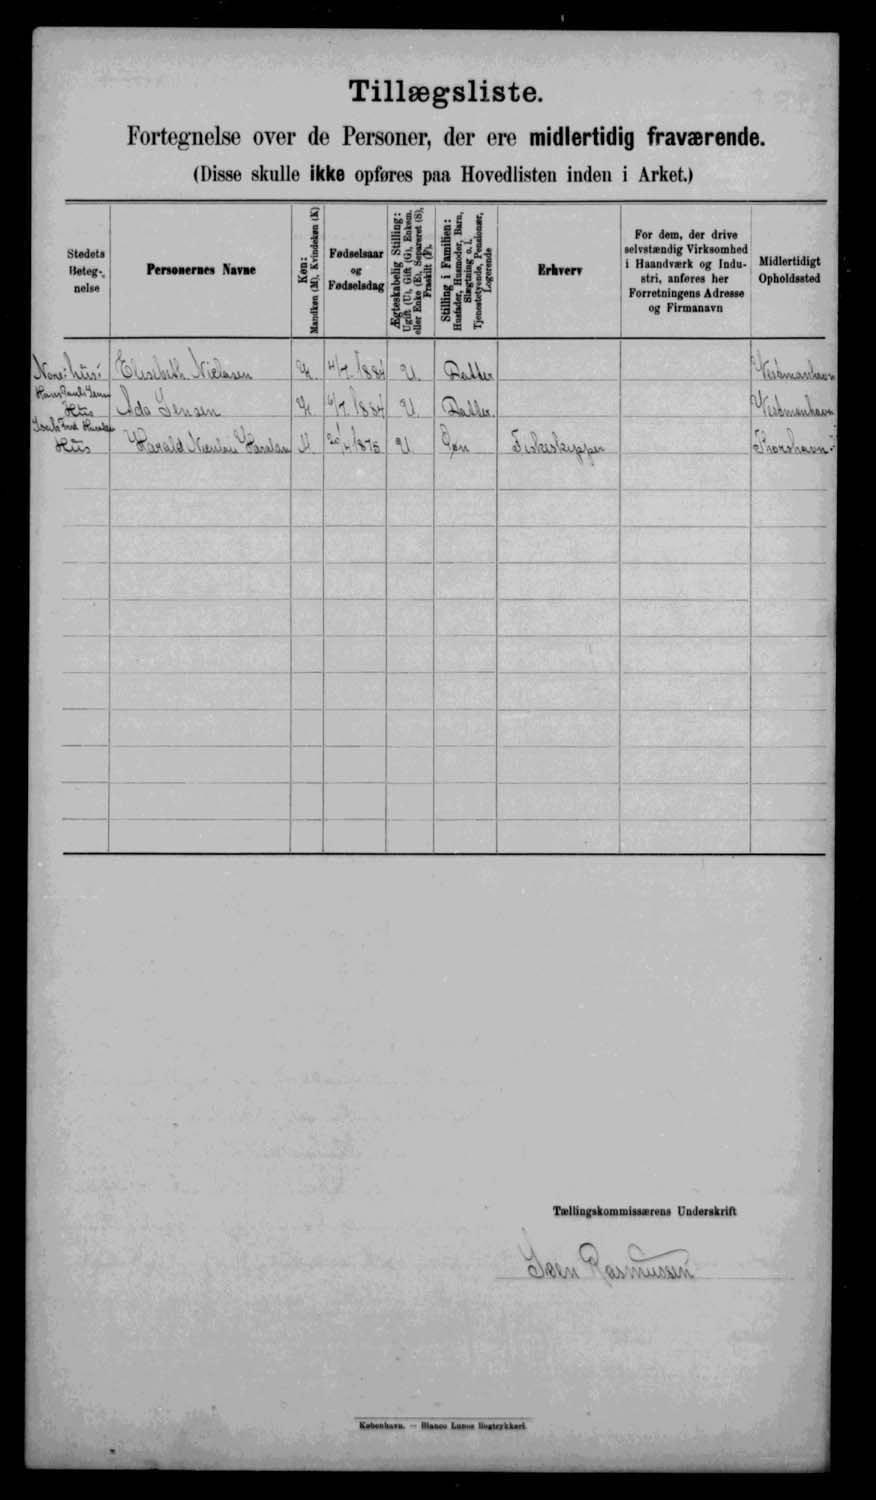 Tillægsliste.
Fortegnelse over de Personer, der ere midlertidig fraværende.
(Disse skulle ikke opføres paa Hovedlisten inden i Arket.)
Stedets Beteg-nelse
Personernes Navne
Køn: Mandkøn (M), Kvindekøn (K)
Fødselsaar og Fødselsdag
Ægteskabelig Stilling: Ugift (U), Gift (G), Enkem. eller Enke (E), Separeret (S), Fraskilt (F).
Stilling i Familien: Husfader, Husmoder, Barn, Slægtning o. l. Tjenestetyende, Pensionær, Logerende
Erhverv
For dem, der drive selvstændig Virksomhed i Haandværk og Indu-stri, anføres her Forretningens Adresse og Firmanavn
Midlertidigt Opholdssted
Hus: Elisebeth Nielsen K. 4/7 1884 U. Datter Vestmanhavn
Hus Ada Jensen K. 6/7 1884 U. Datter. Vestmanhavn
Hus Harald M 1875 U Søn Fiskeskipper
Tællingskommissærens Underskrift
Sven Rasmussen
København. — Bianco Lunos Bogtrykkeri.